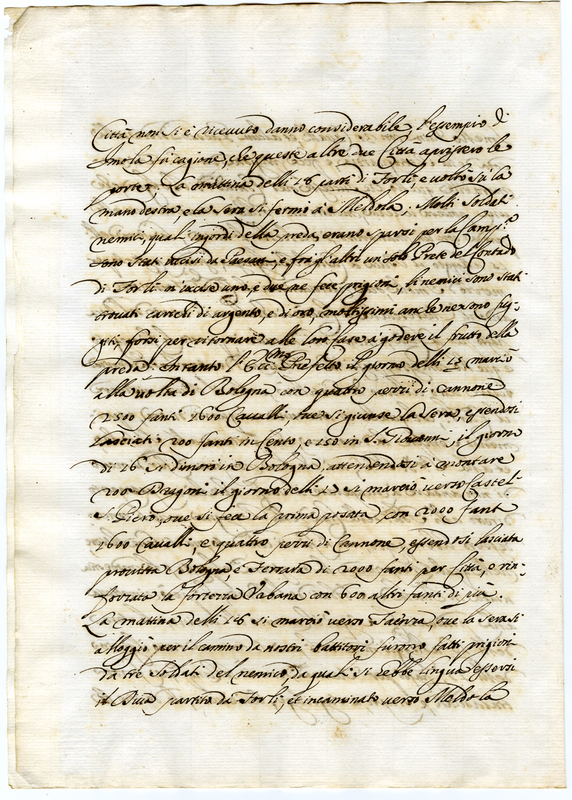 Città non si è riceuuto danno considerabile l'essempio di
Imola fù cagione, che queste altre due Città aprissero le
porte. La mattina delli 18 partì di Forlì, e voltò sù la
mano destra, e la sera si fermò à Meldola. Molti Soldati
nemici, quali ingordi della preda, erano sparsi per la Camp.ª
sono stati uccisi da Paesani, e frà gl'altri un solo Prete del Contado
di Forlì n'uccise uno, e due ne fece prigioni, li nemici sono stati
trouati carichi di argento, e di oro, moltissimi anche ne sono fug-
giti, forsi per ritornare alle loro case à godere il frutto della
preda. Intanto l'Ecc.mo Prefetto il giorno delli 15 marciò
alla uolta di Bologna con quattro pezzi di Cannone
2500 fanti 1600 Caualli, oue si giunse la sera, essendosi
lasciati 200 fanti in Cento, e 150 in S. Giouanni, il giorno
di 16 si dimorò in Bologna, attendendosi à montare
200 Dragoni il giorno delli 17 si marciò uerso Castel
S. Piero, oue si fece la prima posata con 2000 fanti
1600 Caualli, e quattro pezzi di Cannone, essendosi lasciata
prouista Bologna, e Ferrara di 2000 fanti per Città, o rin-
forzata la fortezza Vrbana con 600 altri fanti di più.
La mattina delli 18 si marciò uerso Faenza, oue la sera si
alloggiò per il camino da nostri battitori furono fatti prigioni
da tre Soldati del nemico, da quali si hebbe lingua essersi
il Duca partito da Forlì, et incaminato uerso Meldola